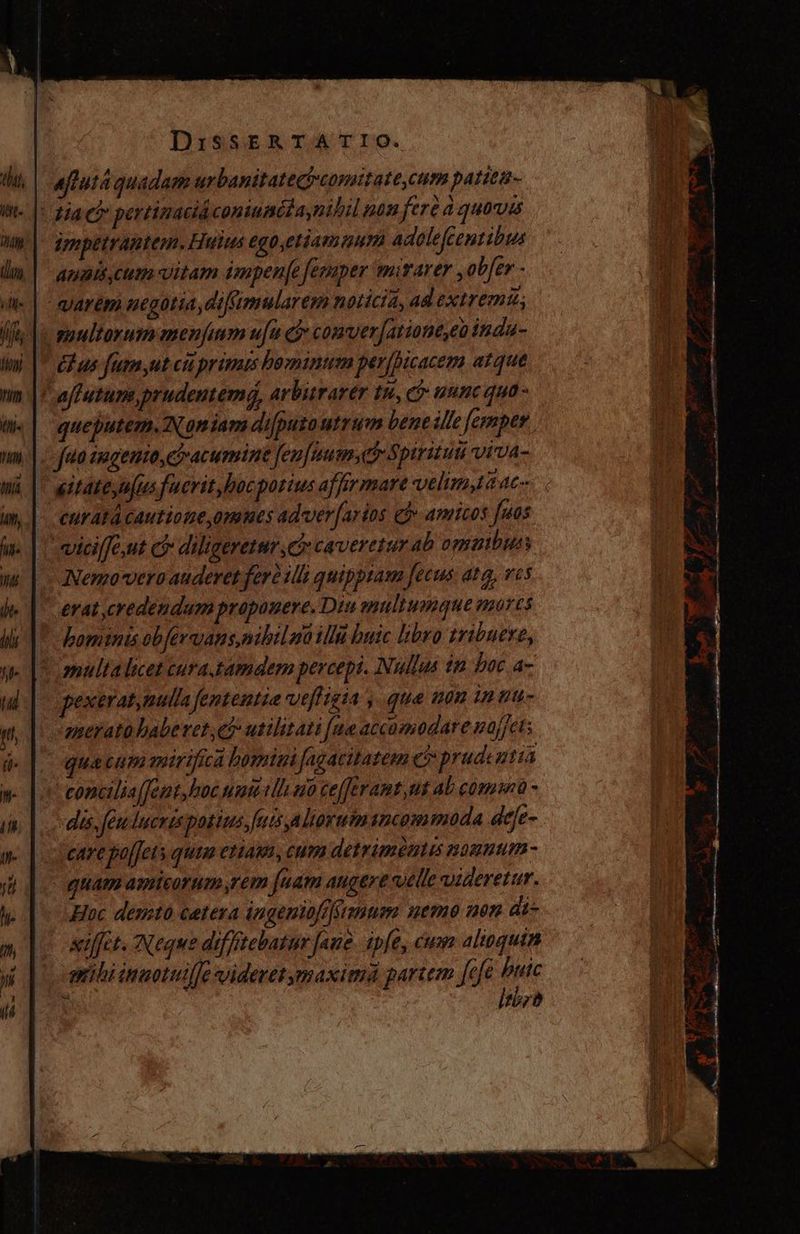 DISSERTATIO.
astutâ quadam urbanitate & comitate, cum patien-
tia & pertinaciâ coniunctâ, nihil non ferè à quovis
impetrantem. Huius ego, etiamnum adolescentibus
annis, cum vitam impense semper mirarer, obser-
varem negotia, dissimularem noticiã, ad extremũ,
multorum mensium usu & conversatione, eò indu-
ctus sum, ut cũ primis hominum perspicacem atque
astutum, prudentemq́, arbitrarer tũ, & nunc quo-
queputem. Non iam disputo utrum bene ille semper
suo ingenio, & acumine sensuum, & Spirituũ viva-
citate, usus fuerit, hoc potius affirmare velim, tã ac-
curatâ cautione, omnes adversarios & amicos suos
vicisse, ut & diligeretur, & caveretur ab omnibus.
Nemo vero auderet ferè illi quippiam secus atq, res
erat, credendum proponere. Diu multumque mores
hominis observans, nihil nõ illũ huic libro tribuere,
multa licet cura, tamdem percepi. Nullus in hoc a-
pexerat, nulla sententiæ vestigia, quæ non in nu-
merato haberet, & utilitati suæ accomodare nosset;
qua cum mirificâ homini sagacitatem & prudentiã
conciliassent, hoc unũ illi nõ cesserant, ut ab cõmmo-
dis, seu lucris potius, suis, aliorum incommoda defe-
care posset; quin etiam, cum detrimentis nonnum-
quam amicorum, rem suam augere velle videretur.
Hoc demto cætera ingeniosissimum nemo non di-
xisset. Neque diffitebatur sanè ipse, cum alioquin
mihi innotuisse videret, maximã partem sese huic
libro